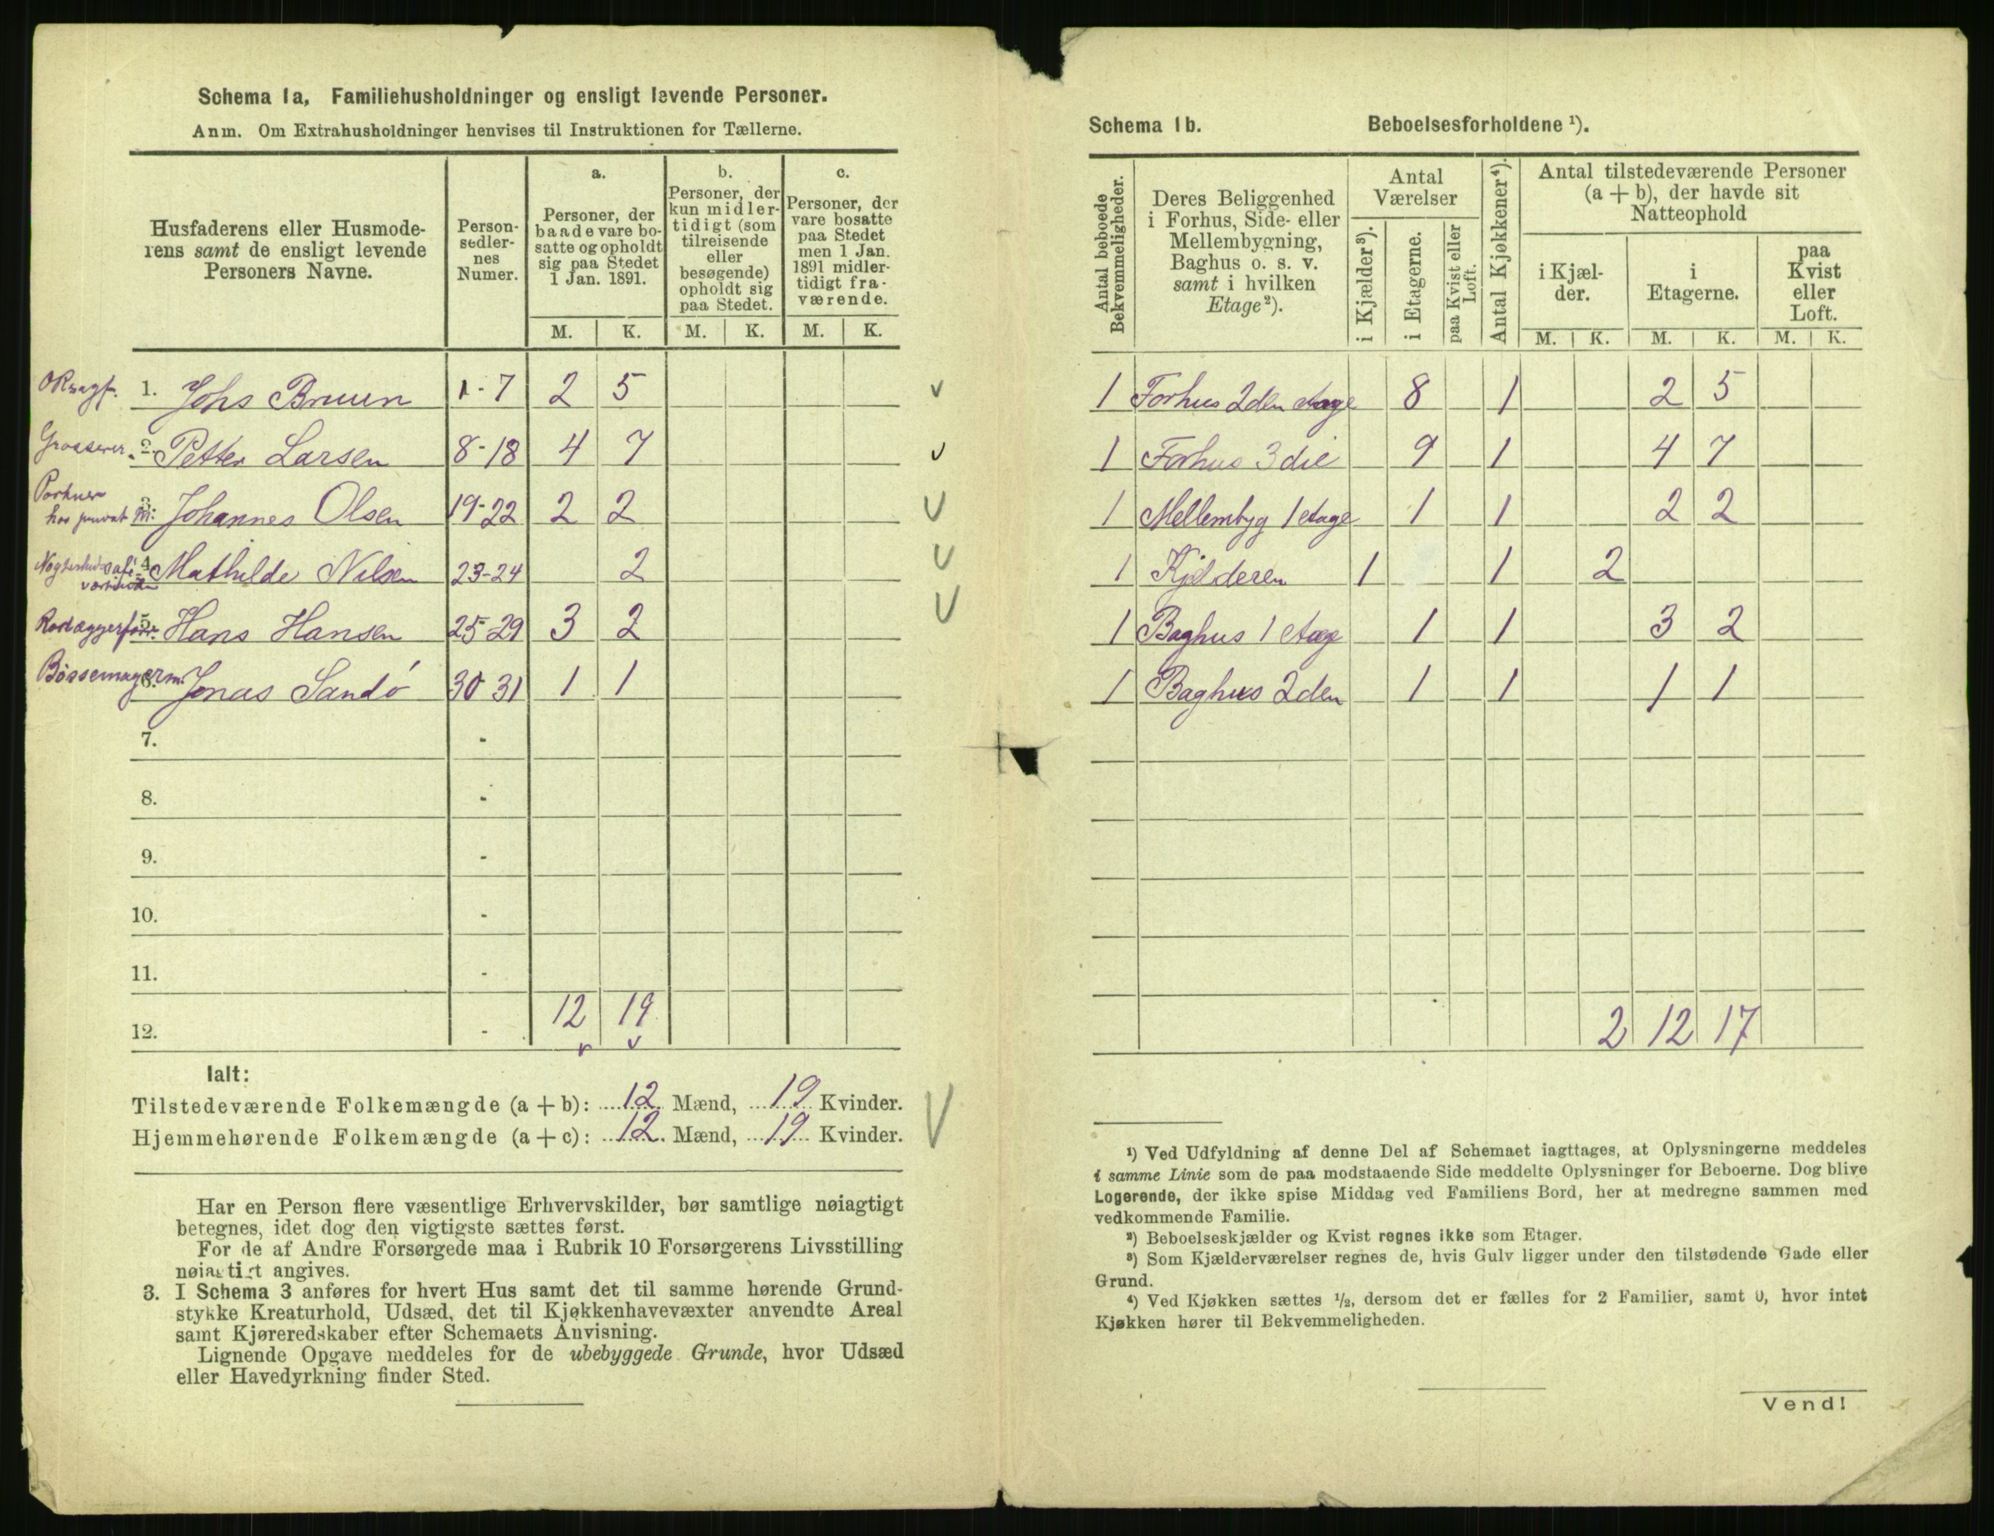 Schema 1a, Familiehusholdninger og ensligt levende Personer.
Anm. Om Extrahusholdninger henvises til Instruktionen for Tællerne.
Husfaderens eller Husmode-
rens samt de ensligt levende
Personers Navne.
Person-
sedler-
nes
Numer.
a.
Personer, der
baade vare bo-
satte og opholdt
sig paa Stedet
1 Jan. 1891.
b.
Personer, der
kun midler-
tidigt (som
tilreisende
eller
besøgende)
opholdt sig
paa Stedet.
c.
Personer, der
vare bosatte
paa Stedet
men 1 Jan.
1891 midler-
tidigt fra-
værende.
M. K. M. K. M. K.
1. Johs Bruun 1-7 2 5
Grosserer. 2. Petter Larsen 8-18 4 7
Portner
hos privat M: 3. Johannes Olsen 19-22 2 2
4. Mathilde Nilsen 23-24 2
5. Hans Hansen 25-29 3 2
Bössemagerm. 6. Jonas Sandö 30 31 1 1
7. -
8. -
9. -
10. -
11. -
12. - 12 19
Ialt:
Tilstedeværende Folkemængde (a + b): 12 Mænd, 19 Kvinder.
Hjemmehørende Folkemængde (a + c): 12 Mænd, 19 Kvinder.
Har en Person flere væsentlige Erhvervskilder, bør samtlige nøiagtigt
betegnes, idet dog den vigtigste sættes først.
For de af Andre Forsørgede maa i Rubrik 10 Forsørgerens Livsstilling
nøiagtigt angives.
3. I Schema 3 anføres for hvert Hus samt det til samme hørende Grund-
stykke Kreaturhold, Udsæd, det til Kjøkkenhavevæxter anvendte Areal
samt Kjøreredskaber efter Schemaets Anvisning.
Lignende Opgave meddeles for de ubebyggede Grunde, hvor Udsæd
eller Havedyrkning finder Sted.
Schema 1b. Beboelsesforholdene ¹).
Antal beboede
Bekvemmeligheder.
Deres Beliggenhed
i Forhus, Side- eller
Mellembygning,
Baghus o. s. v.
samt i hvilken
Etage²).
Antal
Værelser
i Kjælder³).
i Etagerne.
paa Kvist eller
Loft.
Antal Kjøkkener⁴).
Antal tilstedeværende Personer
(a + b), der havde sit
Natteophold
i Kjæl-
der.
i
Etagerne.
paa
Kvist
eller
Loft.
M. K. M. K. M. K.
1 Forhus 2den Etage 8 1 2 5
1 Forhus 3die 9 1 4 7
1 Mellembyg 1 etage 1 1 2 2
1 Kjelderen 1 1 2
1 Baghus 1 Etage 1 1 3 2
1 Baghus 2den 1 1 1 1
2 12 17
¹) Ved Udfyldning af denne Del af Schemaet iagttages, at Oplysningerne meddeles
i samme Linie som de paa modstaaende Side meddelte Oplysninger for Beboerne. Dog blive
Logerende, der ikke spise Middag ved Familiens Bord, her at medregne sammen med
vedkommende Familie.
²) Beboelseskjælder og Kvist regnes ikke som Etager.
³) Som Kjælderværelser regnes de, hvis Gulv ligger under den tilstødende Gade eller
Grund.
⁴) Ved Kjøkken sættes ½, dersom det er fælles for 2 Familier, samt 0, hvor intet
Kjøkken hører til Bekvemmeligheden.
Vend!